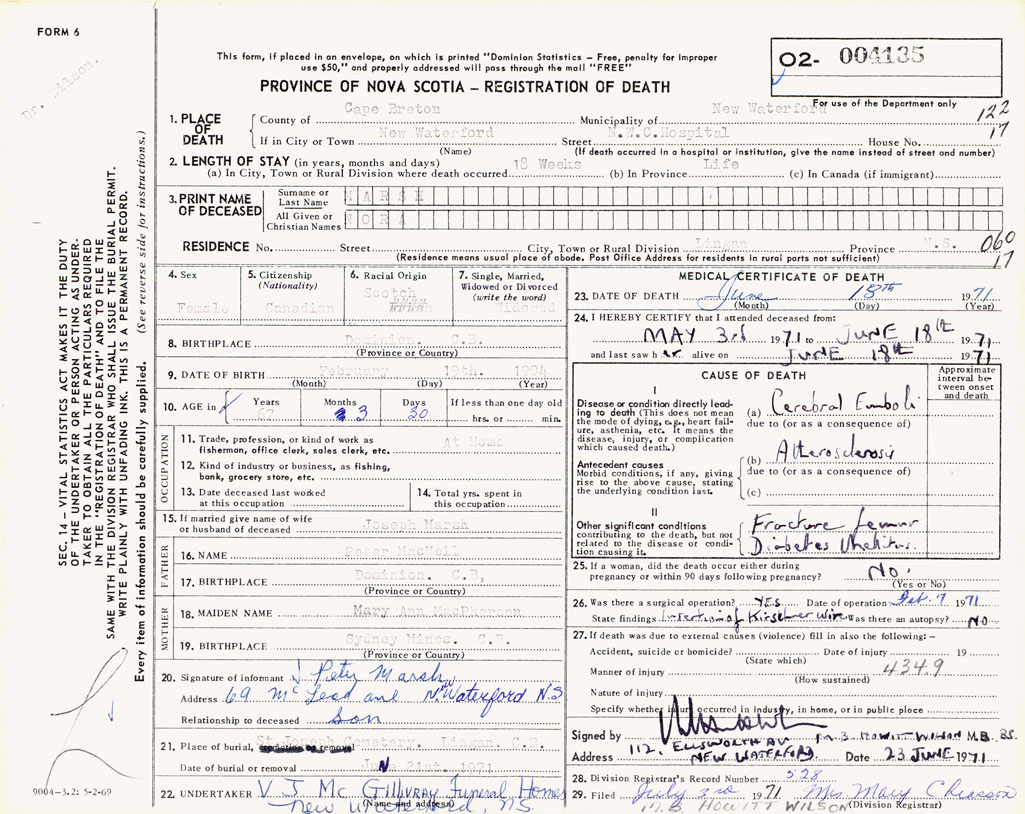 FORM 6
Dr. Wilson.
This form, if placed in an envelope, on which is printed "Dominion Statistics – Free, penalty for improper
use $50," and properly addressed will pass through the mail "FREE"
O2- 004135
For use of the Department only
PROVINCE OF NOVA SCOTIA – REGISTRATION OF DEATH
122
17
1. PLACE OF DEATH
County of Cape Breton Municipality of New Waterford
If in City or Town New Waterford Street N.W.C.Hospital House No.
(Name) (If death occurred in a hospital or institution, give the name instead of street and number)
2. LENGTH OF STAY (in years, months and days)
(a) In City, Town or Rural Division where death occurred 18 Weeks (b) In Province Life (c) In Canada (if immigrant)
3. PRINT NAME OF DECEASED
Surname or Last Name MARSH
All Given or Christian Names NORA
RESIDENCE No. Street City, Town or Rural Division Lingan Province N.S.
(Residence means usual place of abode. Post Office Address for residents in rural parts not sufficient)
060
17
4. Sex Female
5. Citizenship (Nationality) Canadian
6. Racial Origin Scotch
7. Single, Married, Widowed or Divorced (write the word) Widowed
8. BIRTHPLACE Dominion, C.B.
(Province or Country)
9. DATE OF BIRTH February 19th. 1904
(Month) (Day) (Year)
10. AGE in Years 67 Months 3 Days 30 If less than one day old hrs. or min.
OCCUPATION
11. Trade, profession, or kind of work as fisherman, office clerk, sales clerk, etc. At Home
12. Kind of industry or business, as fishing, bank, grocery store, etc.
13. Date deceased last worked at this occupation
14. Total yrs. spent in this occupation
15. If married give name of wife or husband of deceased Joseph Marsh
FATHER
16. NAME Peter MacNeil
17. BIRTHPLACE Dominion. C.B,
(Province or Country)
MOTHER
18. MAIDEN NAME Mary Ann MacPherson
19. BIRTHPLACE Sydney Mines. C.B.
(Province or Country)
20. Signature of informant Peter Marsh
Address 69 McLeod ave N. Waterford N.S
Relationship to deceased Son
21. Place of burial, cremation or removal St Joseph Cemetery. Lingan, C.B.
Date of burial or removal June 21st. 1971
22. UNDERTAKER V J McGillivray Funeral Home
New Waterford, NS
(Name and address)
MEDICAL CERTIFICATE OF DEATH
23. DATE OF DEATH June 18th 1971
(Month) (Day) (Year)
24. I HEREBY CERTIFY that I attended deceased from:
MAY 3rd 1971 to JUNE 18th 1971
and last saw her alive on JUNE 18th 1971
CAUSE OF DEATH
Approximate interval between onset and death
I
Disease or condition directly leading to death (This does not mean the mode of dying, e.g., heart failure, asthenia, etc. It means the disease, injury, or complication which caused death.)
(a) Cerebral Emboli
due to (or as a consequence of)
Antecedent causes
Morbid conditions, if any, giving rise to the above cause, stating the underlying condition last.
(b) Atherosclerosis
due to (or as a consequence of)
(c)
II
Other significant conditions contributing to the death, but not related to the disease or condition causing it.
Fracture Femur
Diabetes Mellitus.
25. If a woman, did the death occur either during pregnancy or within 90 days following pregnancy? No.
(Yes or No)
26. Was there a surgical operation? YES Date of operation Feb. 7 1971
State findings Insertion of Kirschner wire Was there an autopsy? NO
27. If death was due to external causes (violence) fill in also the following: –
Accident, suicide or homicide? Date of injury 19
(State which)
Manner of injury 4349
(How sustained)
Nature of injury
Specify whether injury occurred in industry, in home, or in public place
Signed by M. B. HOWITT WILSON M.B. BS.
Address 112, ELLSWORTH AV NEW WATERFORD Date 23 JUNE 1971
28. Division Registrar's Record Number 528
29. Filed July 3rd 1971 Mrs Mary Chiasson
M.B. HOWITT WILSON (Division Registrar)
SEC. 14 – VITAL STATISTICS ACT MAKES IT THE DUTY
OF THE UNDERTAKER OR PERSON ACTING AS UNDER-
TAKER TO OBTAIN ALL THE PARTICULARS REQUIRED
IN THE "REGISTRATION OF DEATH" AND TO FILE THE
SAME WITH THE DIVISION REGISTRAR WHO SHALL ISSUE THE BURIAL PERMIT.
WRITE PLAINLY WITH UNFADING INK. THIS IS A PERMANENT RECORD.
Every item of information should be carefully supplied. (See reverse side for instructions.)
9004-3.2: 5-2-69